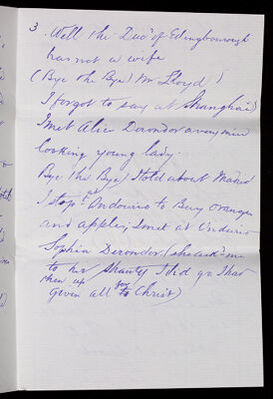 3. Well the Duc of Edingbourough
has not a wife
(Bye the Bye) Mr Lloyd!)
I forgot to say at Shanghai)
I met Alice Derondor a very nice
looking young lady.
Bye the Bye) I told about Madrid
I stop at to Buy oranges
and apples, I met at
Sophia Derondor (she ask me
to her Shanty I did go I had
then up
Given all for to Christ)